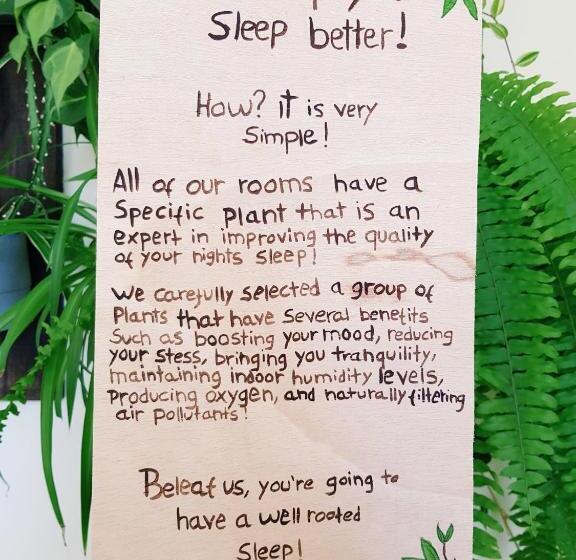 Sleep better!
How? it is very
Simple!
All of our rooms have a
Specific plant that is an
expert in improving the quality
of your nights sleep!
We carefully selected a group of
Plants that have several benefits
Such as boosting your mood, reducing
your stess, bringing you tranquility,
maintaining indoor humidity levels,
Producing oxygen, and naturally filtering
air pollutants!
Beleaf us, you're going to
have a well rooted
Sleep!